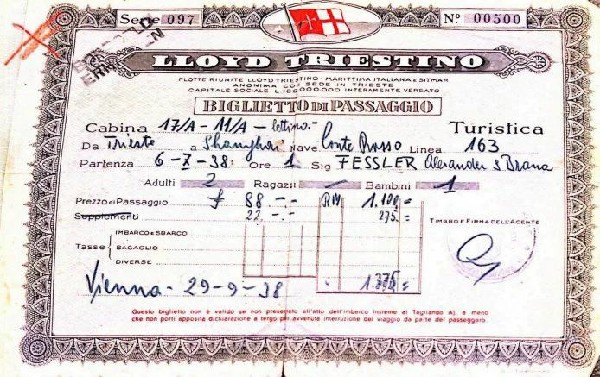 Serie 097 Nº 00500
LLOYD TRIESTINO
FLOTTE RIUNITE LLOYD TRIESTINO - MARITTIMA ITALIANA E SITMAR
ANONIMA CON SEDE IN TRIESTE
CAPITALE SOCIALE L. INTERAMENTE VERSATO
BIGLIETTO DI PASSAGGIO
Cabina 17/A - 11/A - lettino.- Turistica
Da Trieste a Shanghai nave Conte Rosso Linea 163
Partenza 6-X-38. Ore 1 Sig FESSLER Alexander & Bruna
Adulti 2 Ragazzi / Bambini 1
Prezzo di Passaggio £ 88.-.- RM 1.100 =
Supplementi 22.-.- 275 =
TIMBRO E FIRMA DELL'AGENTE
Tasse
IMBARCO E SBARCO
BAGAGLIO
DIVERSE
Vienna - 29-9-38 1375 =
Questo biglietto non è valido se non presentato all'atto dell'imbarco insieme al Tagliando a), a meno
che non porti apposita dichiarazione a tergo per avvenuta interruzione del viaggio da parte del passeggero.